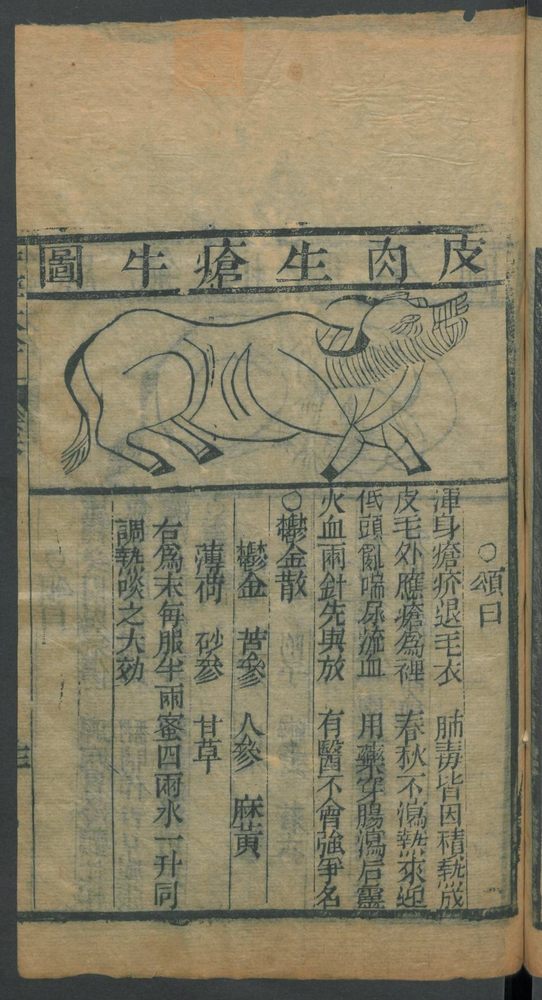 皮肉生瘡牛圖
○頌曰
渾身瘡疥退毛衣　肺毒皆因積𤍠成
皮毛外應瘡爲裡　春秋不瀉𤍠來廹
低頭亂喘尿流血　用藥穿腸瀉后靈
火血兩針先與放　有醫不會強爭名
○鬱金散
鬱金　苦參　人參　麻黃
薄荷　砂參　甘草
右爲末每服半兩蜜四兩水一升同
調𤍠啖之大効